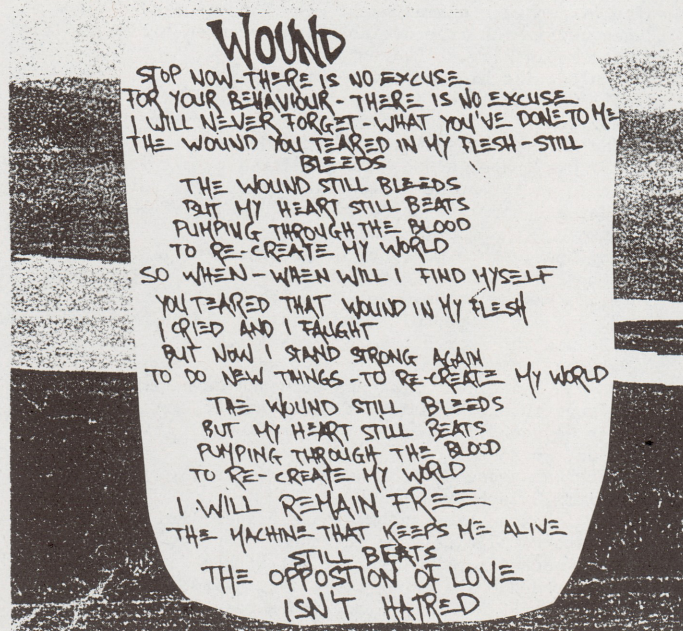 WOUND
STOP NOW - THERE IS NO EXCUSE
FOR YOUR BEHAVIOUR - THERE IS NO EXCUSE
I WILL NEVER FORGET - WHAT YOU'VE DONE TO ME
THE WOUND YOU TEARED IN MY FLESH - STILL
BLEEDS
THE WOUND STILL BLEEDS
BUT MY HEART STILL BEATS
PUMPING THROUGH THE BLOOD
TO RE-CREATE MY WORLD
SO WHEN - WHEN WILL I FIND MYSELF
YOU TEARED THAT WOUND IN MY FLESH
I CRIED AND I FAUGHT
BUT NOW I STAND STRONG AGAIN
TO DO NEW THINGS - TO RE-CREATE MY WORLD
THE WOUND STILL BLEEDS
BUT MY HEART STILL BEATS
PUMPING THROUGH THE BLOOD
TO RE-CREATE MY WORLD
I WILL REMAIN FREE
THE MACHINE THAT KEEPS ME ALIVE
STILL BEATS
THE OPPOSTION OF LOVE
ISN'T HATRED